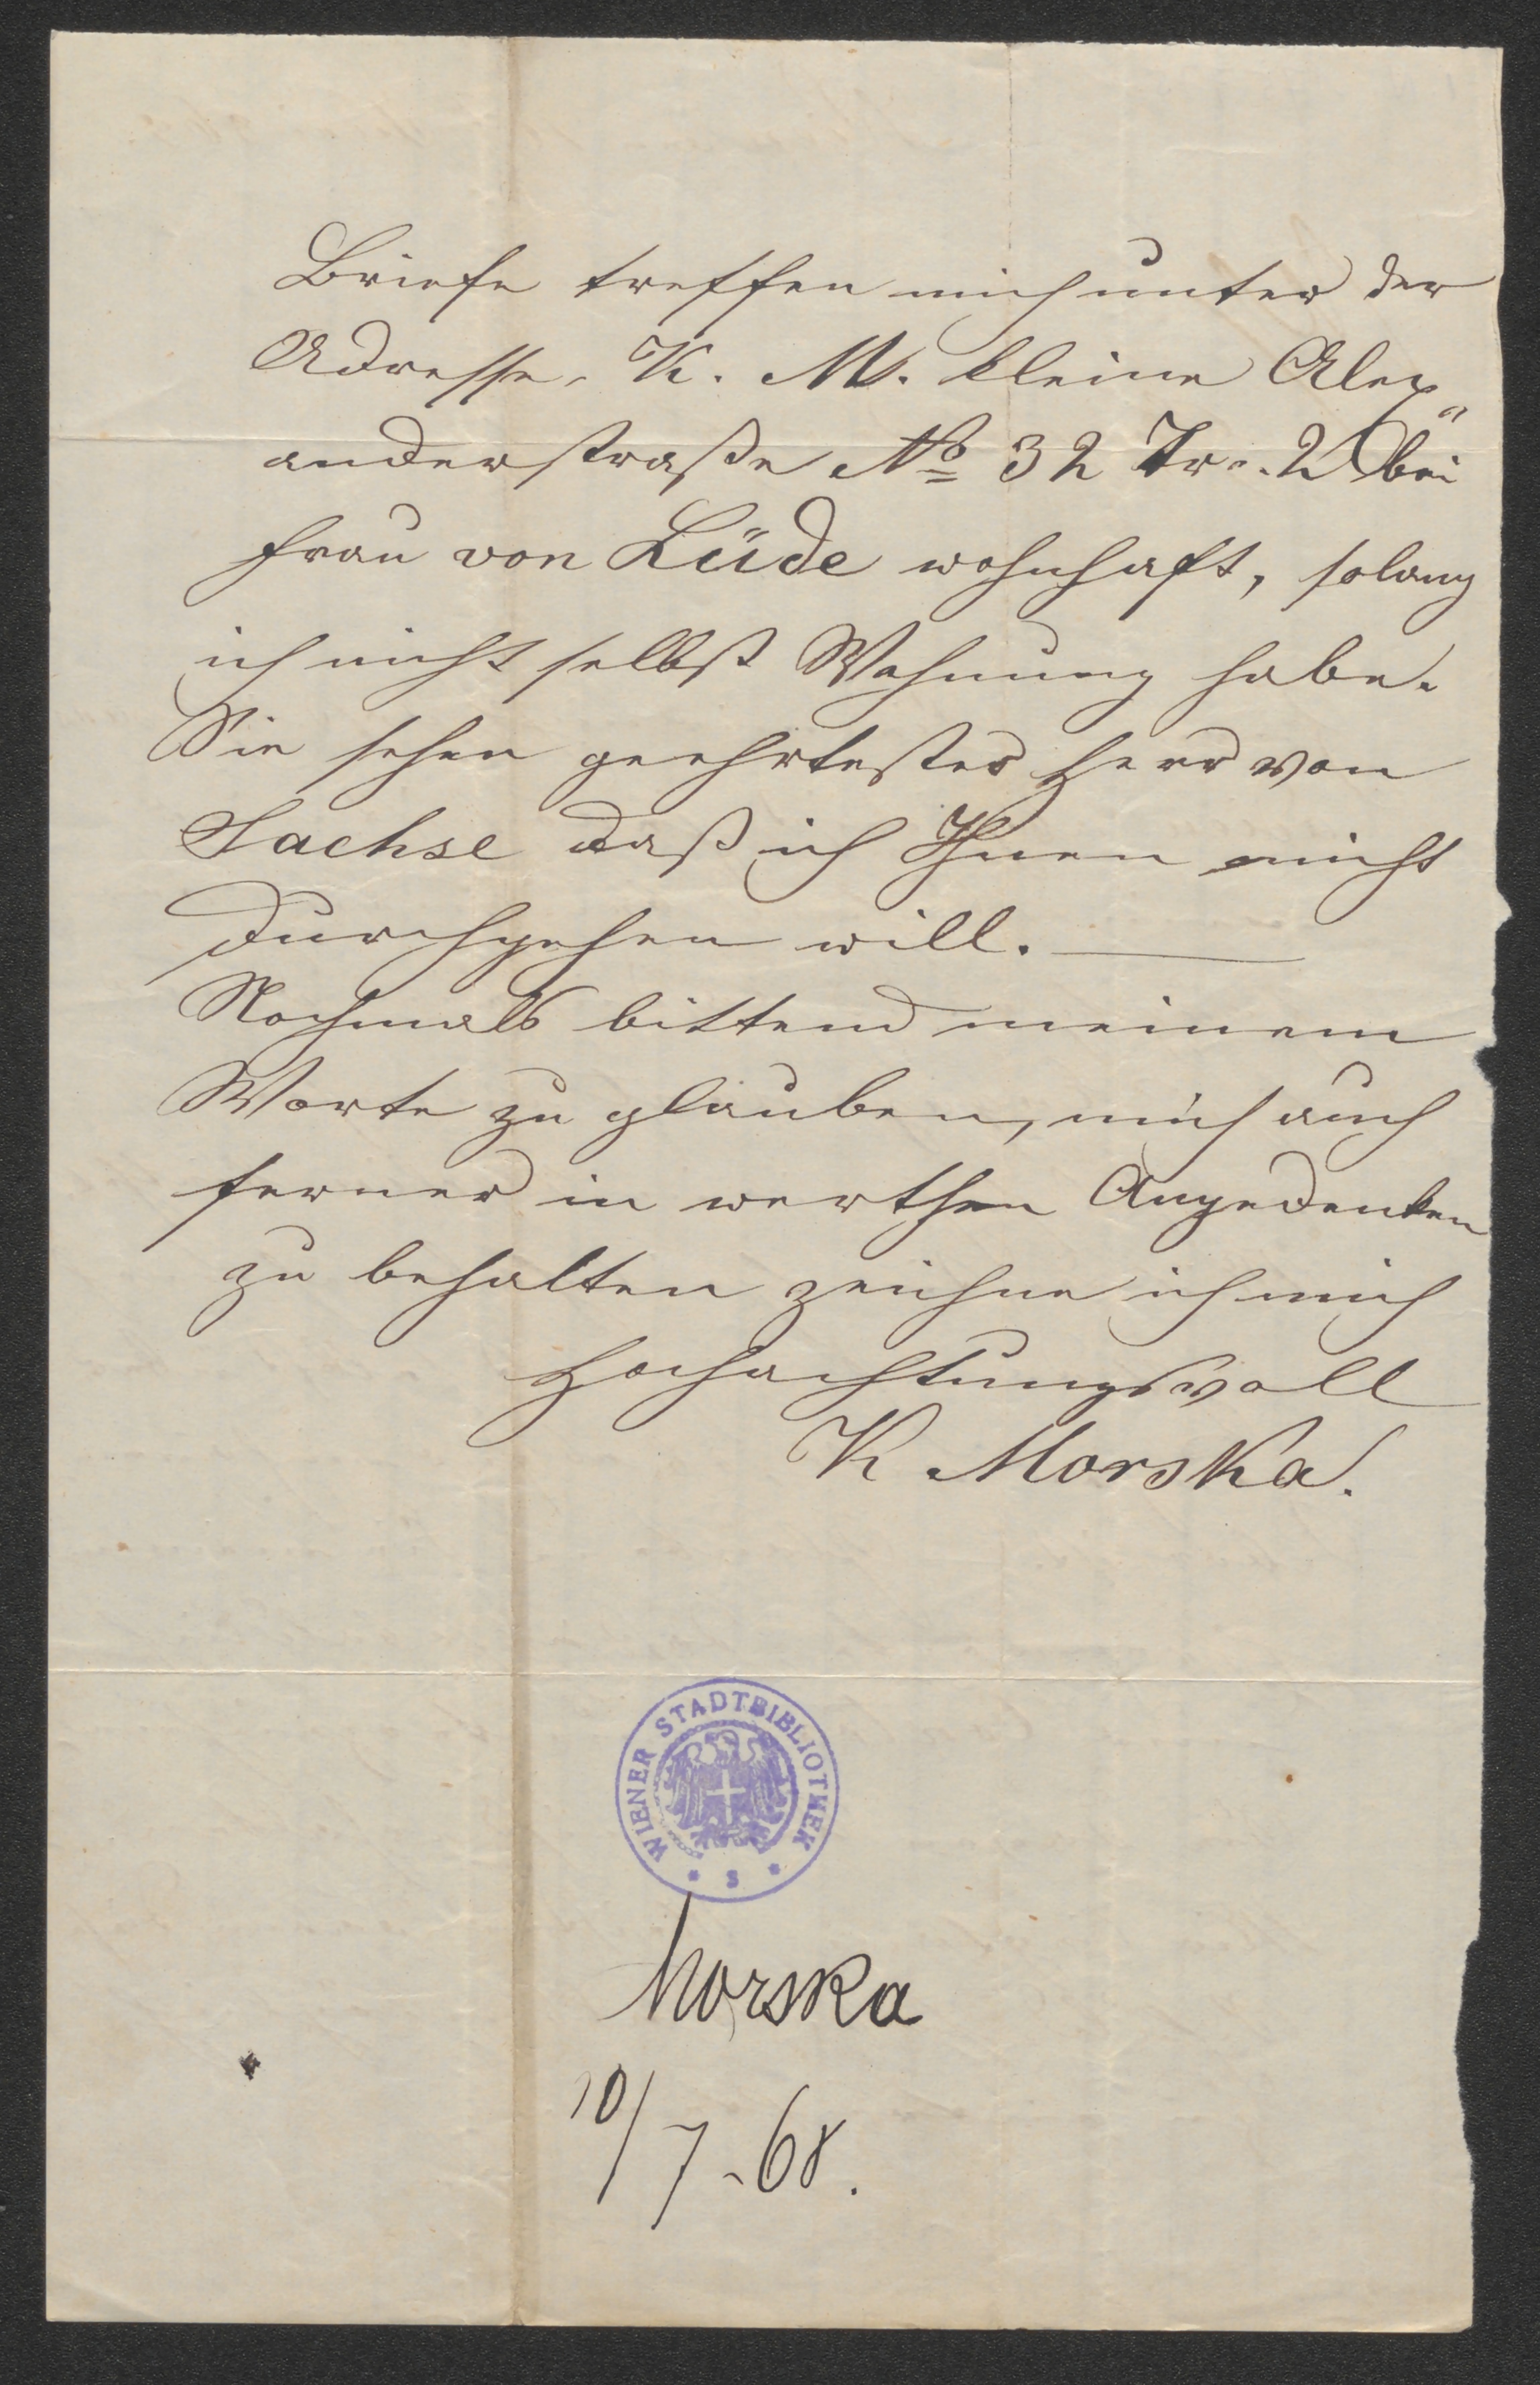 Briefe treffen mich unter der
Adresse, K. M. kleine Alex„
anderstraße No 32 Tr. 2 bei
Frau von Lüde wohnhaft, solang
ich nicht selbst Wohnung habe.
Sie sehen geehrtester Herr von
Sachse daß ich Ihnen nicht
durchgehen will.
Nochmals bittend meinem
Worte zu glauben, mich auch
ferner in werthen Angedenken
zu behalten zeichne ich mich
Hochachtungsvoll
K. Morska.
WIENER STADTBIBLIOTHEK
* S *
Morska
10/7-68.